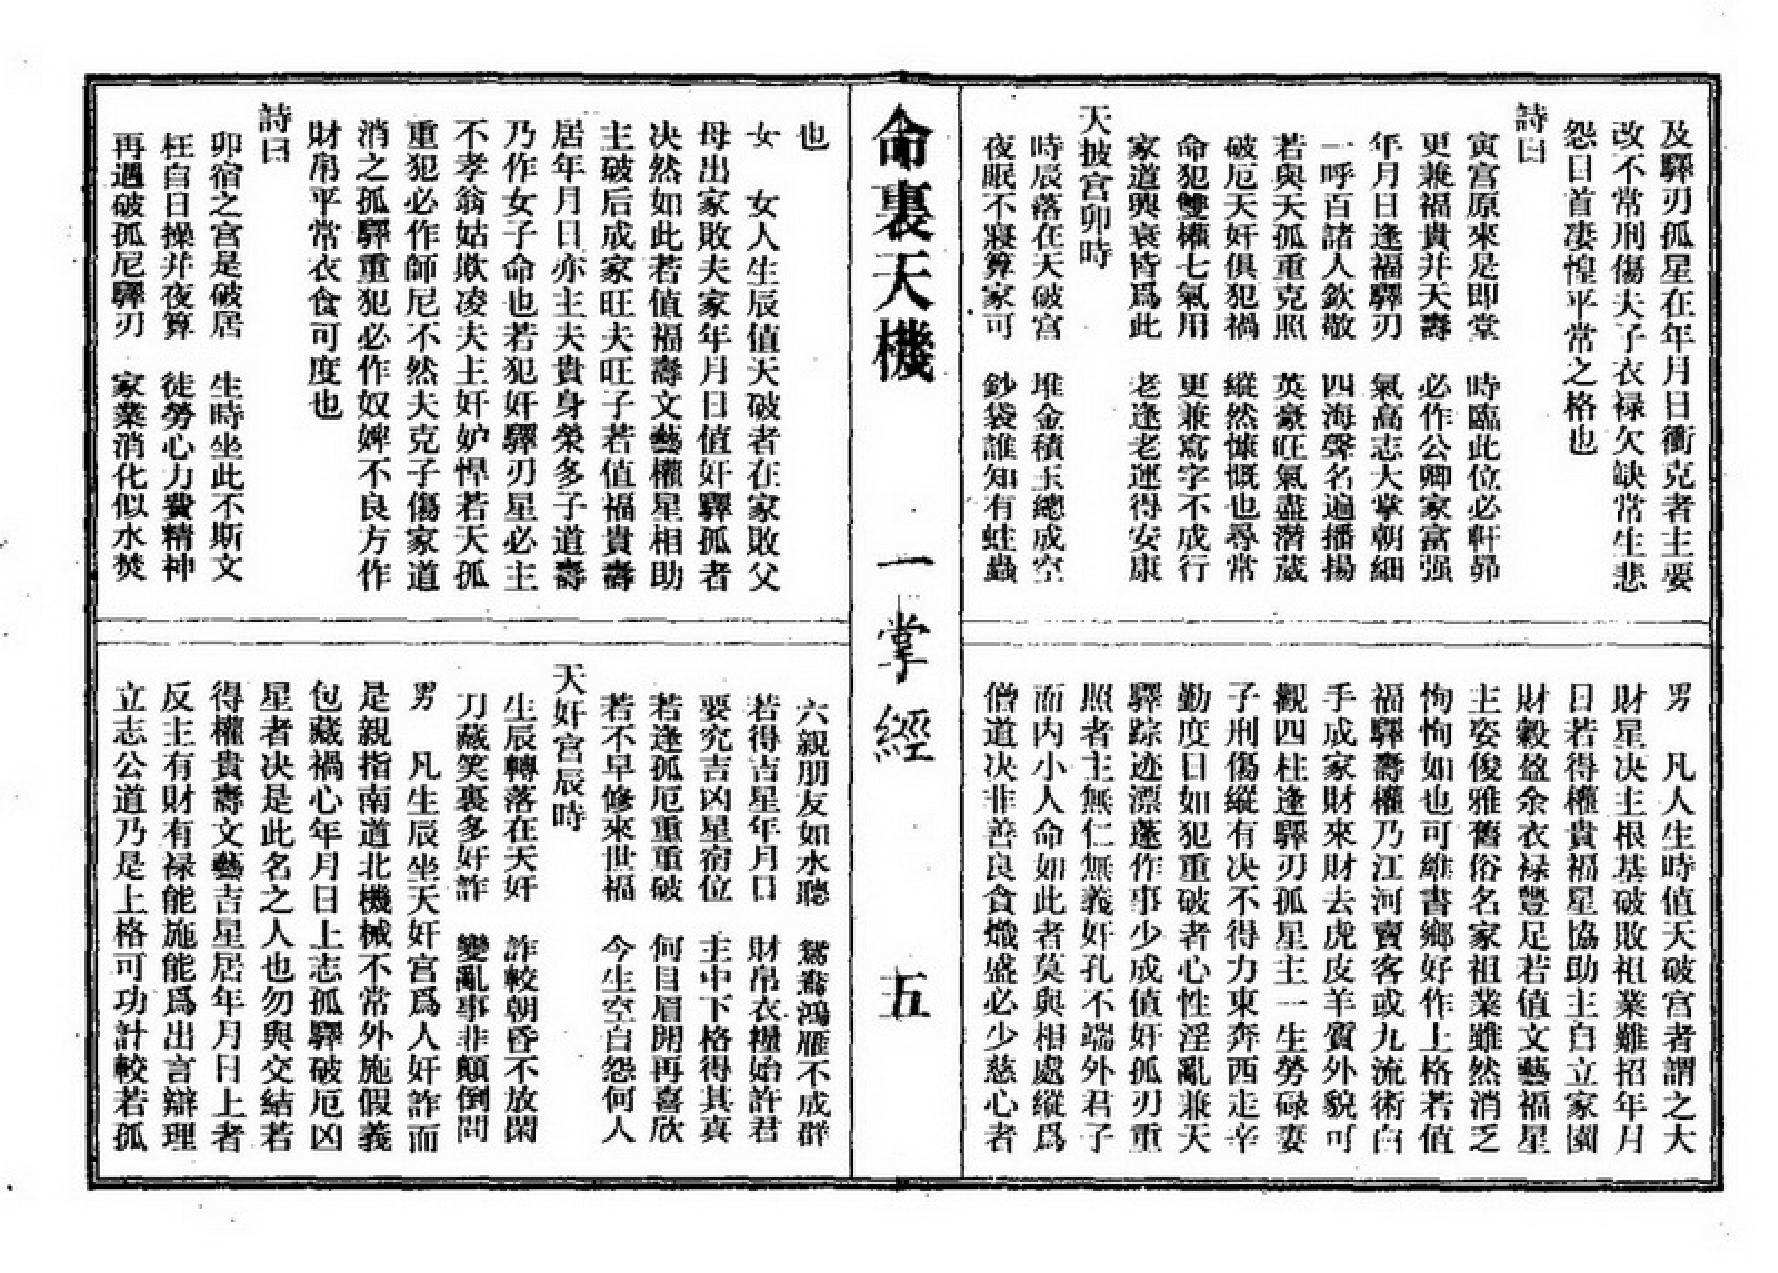 及驛刃孤星在年月日衝克者主要
改不常刑傷夫子衣禄欠缺常生悲
怨日首凄惶平常之格也
詩曰
寅宮原來是即堂 時臨此位必軒昴
更兼福貴并天壽 必作公卿家富强
年月日逢福驛刃 氣高志大掌朝細
一呼百諸人欽敬 四海聲名遍播揚
若與天孤重克照 英豪旺氣盡潛蔵
破厄天奸俱犯禍 縱然慷慨也尋常
命犯雙權七氣用 更兼寫字不成行
家道興衰皆爲此 老逢老運得安康
天披宮卯時
時辰落在天破宮 堆金積玉總成空
夜眠不寢算家可 鈔袋誰知有蛀蟲
男 凡人生時值天破宮者謂之大
財星决主根基破敗祖業難招年月
日若得權貴福星協助主自立家園
財穀盈余衣禄豐足若值文藝福星
主姿俊雅舊俗名家祖業雖然消乏
恂恂如也可維書鄉好作上格若值
福驛壽權乃江河賣客或九流術白
手成家財來財去虎皮羊質外貌可
觀四柱逢驛刃孤星主一生勞碌妻
子刑傷縱有决不得力東奔西走辛
勤度日如犯重破者心性淫亂兼天
驛踪迹漂蓬作事少成值奸孤刃重
照者主無仁無義奸孔不端外君子
而内小人命如此者莫與相處縱爲
僧道决非善良貪熾盛必少慈心者
命裏天機 一掌經 五
也
女 女人生辰值天破者在家敗父
母出家敗夫家年月日值奸驛孤者
决然如此若值福壽文藝權星相助
主破后成家旺夫旺子若值福貴壽
居年月日亦主夫貴身榮多子道壽
乃作女子命也若犯奸驛刃星必主
不孝翁姑欺凌夫主奸妒悍若天孤
重犯必作師尼不然夫克子傷家道
消之孤驛重犯必作奴婢不良方作
財帛平常衣食可度也
詩曰
卯宿之宮是破居 生時坐此不斯文
枉自日操并夜算 徒勞心力費精神
再遇破孤尼驛刃 家業消化似水焚
六親朋友如水聽 鴛鴦鴻雁不成群
若得吉星年月日 財帛衣糧始許君
要究吉凶星宿位 主中下格得其真
若逢孤厄重重破 何目眉開再喜欣
若不早修來世福 今生空自怨何人
天奸宮辰時
生辰轉落在天奸 詐較朝昏不放閑
刀藏笑裏多奸詐 變亂事非顛倒問
男 凡生辰坐天奸宮爲人奸詐而
是親指南道北機械不常外施假義
包藏禍心年月日上志孤驛破厄凶
星者决是此名之人也勿與交結若
得權貴壽文藝吉星居年月日上者
反主有財有禄能施能爲出言辯理
立志公道乃是上格可功計較若孤